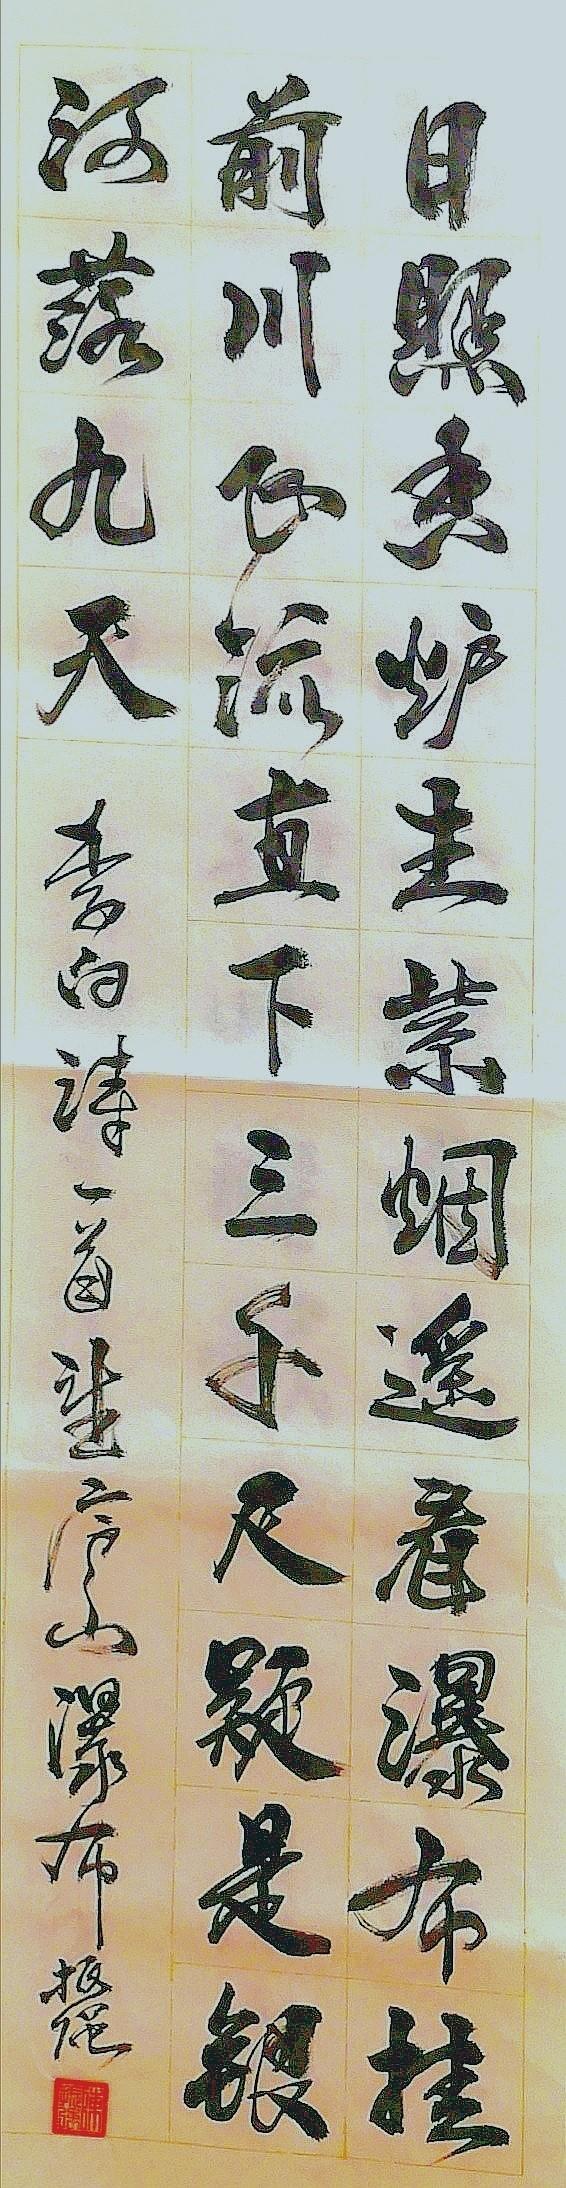 日照香炉生紫烟遥看瀑布挂
前川飞流直下三千尺疑是银
河落九天 李白诗一首望庐山瀑布 振